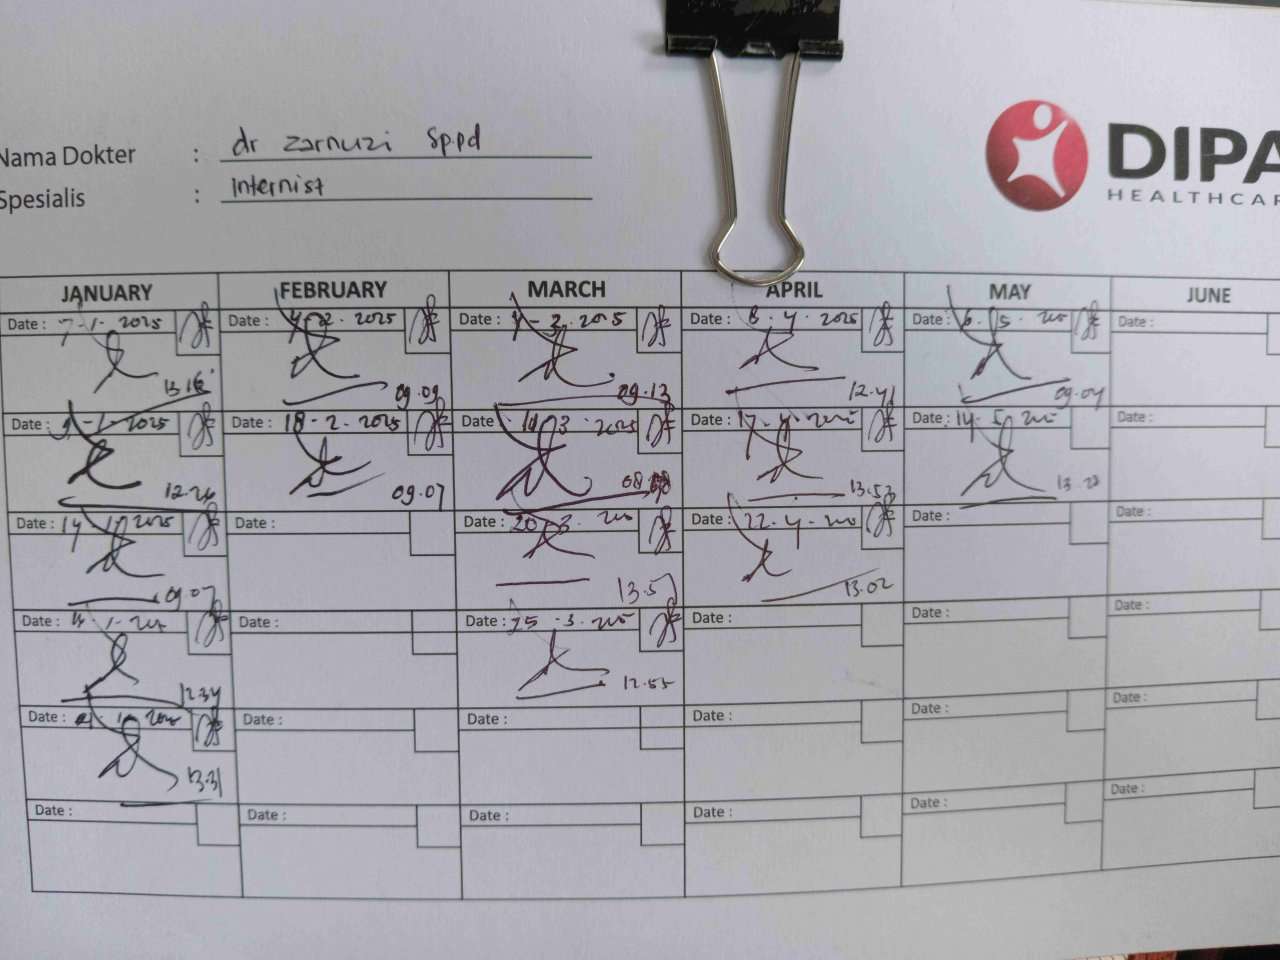 Nama Dokter : dr zarnuzi Sp.pd
Spesialis : Internist
DIPA
HEALTHCAR
JANUARY FEBRUARY MARCH APRIL MAY JUNE
Date : 7-1-2025 Date : 4-2-2025 Date : Date : 8-4-2025 Date : 6-5- Date :
13.16 09.09 09.13 12.41 09.04
Date : 9-1-2025 Date : 18-2-2025 Date : 3-2025 Date : 17-4- Date : 14-5- Date :
12.26 09.07 08. 13.53 13.
Date : 14-1-2025 Date : Date : 20-3- Date : 22-4- Date : Date :
09.07 13.57 13.02
Date : Date : Date : 25-3- Date : Date : Date :
12.34 12.55
Date : Date : Date : Date : Date : Date :
13.31
Date : Date : Date : Date : Date : Date :